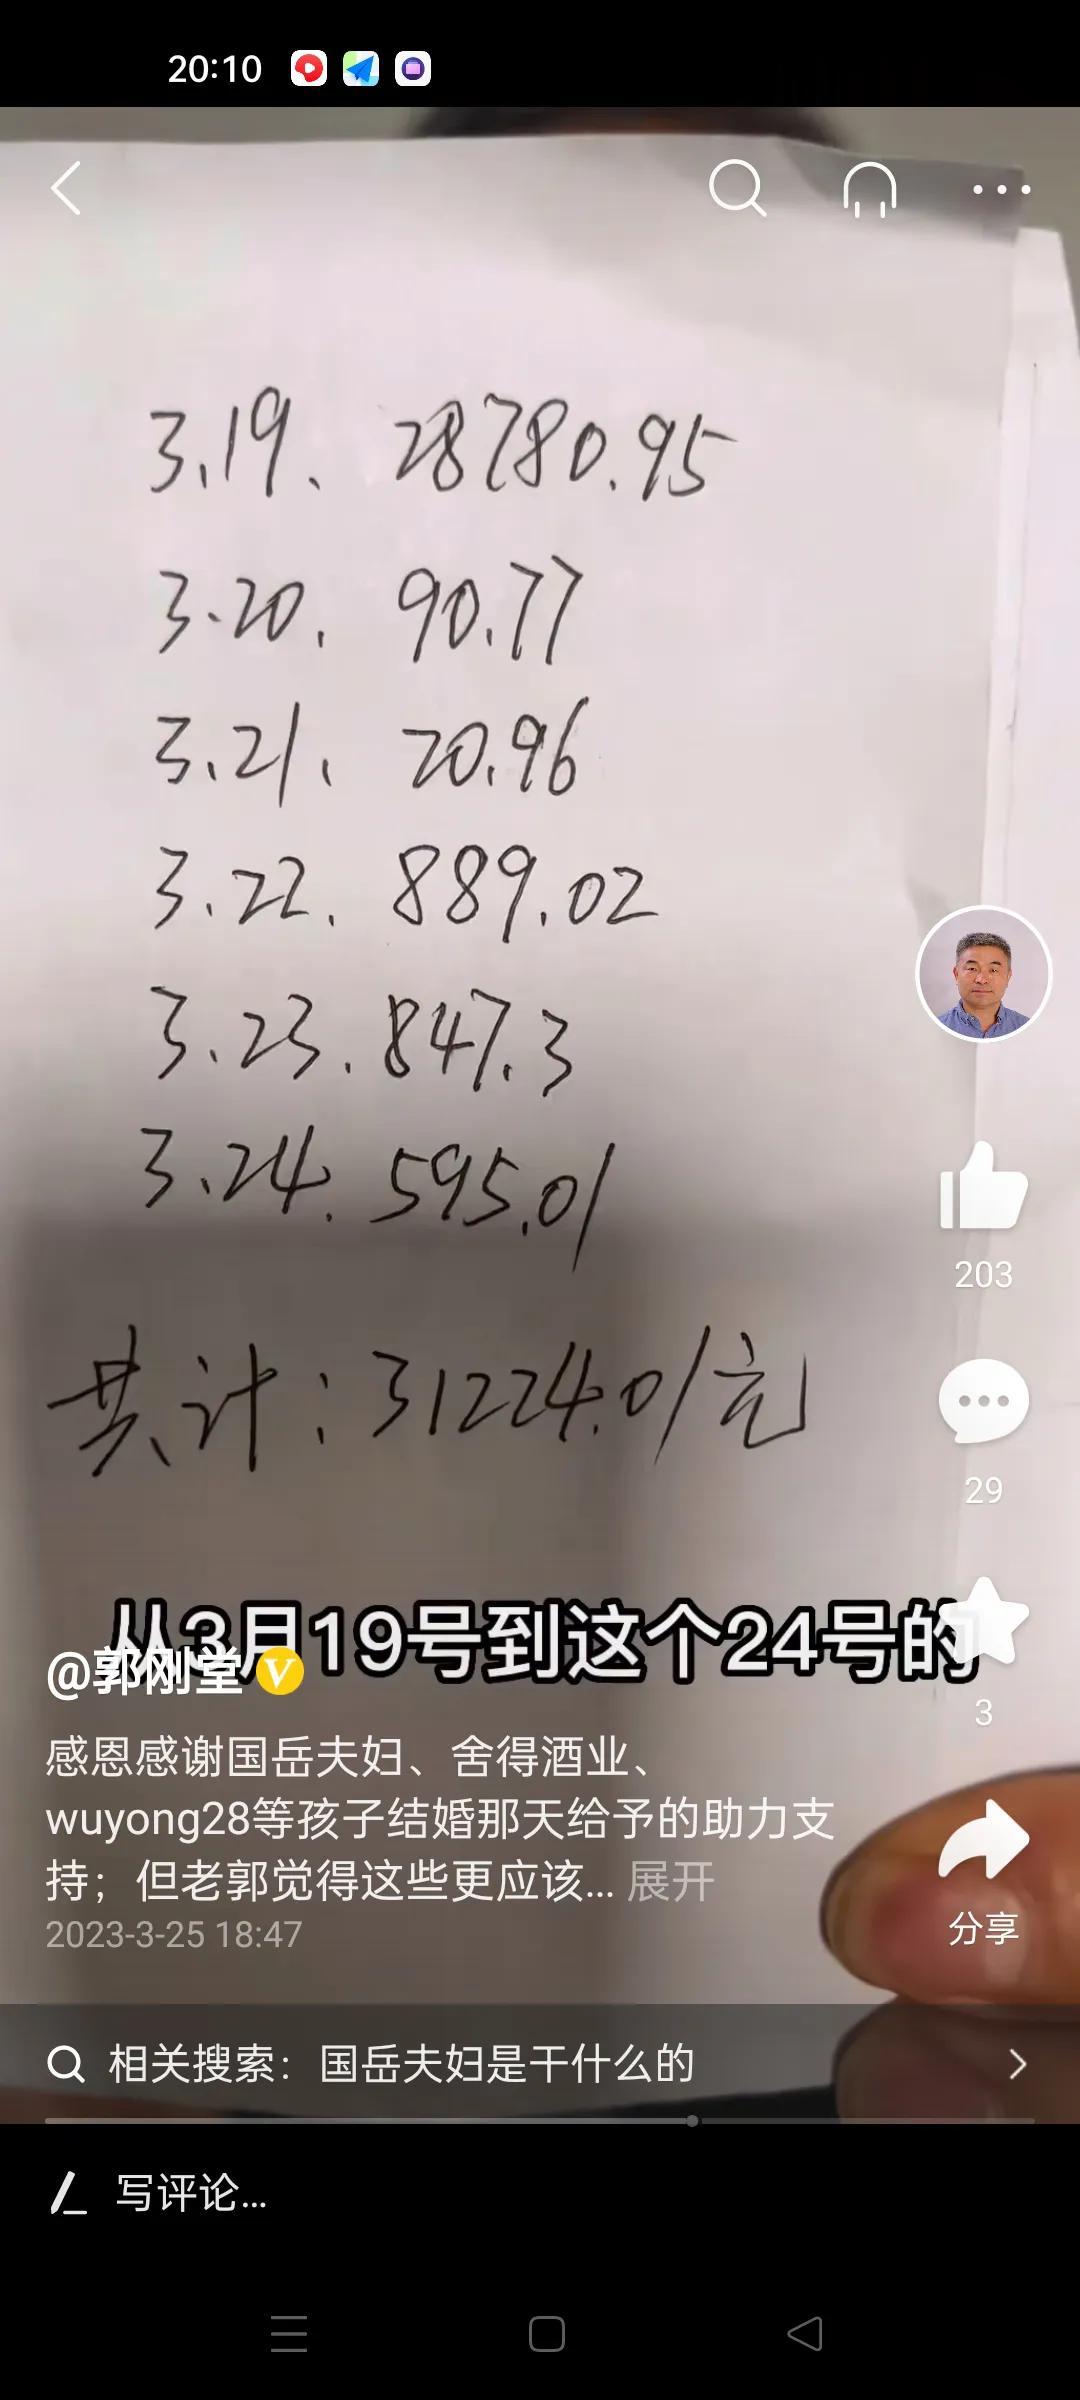 20:10
3.19、28780.95
3.20. 90.77
3.21、20.96
3.22. 889.02
3.23. 847.3
3.24. 595.01
共计：31224.01元
203
29
从3月19号到这个24号的
@郭刚堂
3
感恩感谢国岳夫妇、舍得酒业、
wuyong28等孩子结婚那天给予的助力支
持；但老郭觉得这些更应该... 展开
2023-3-25 18:47
分享
相关搜索：国岳夫妇是干什么的
写评论...